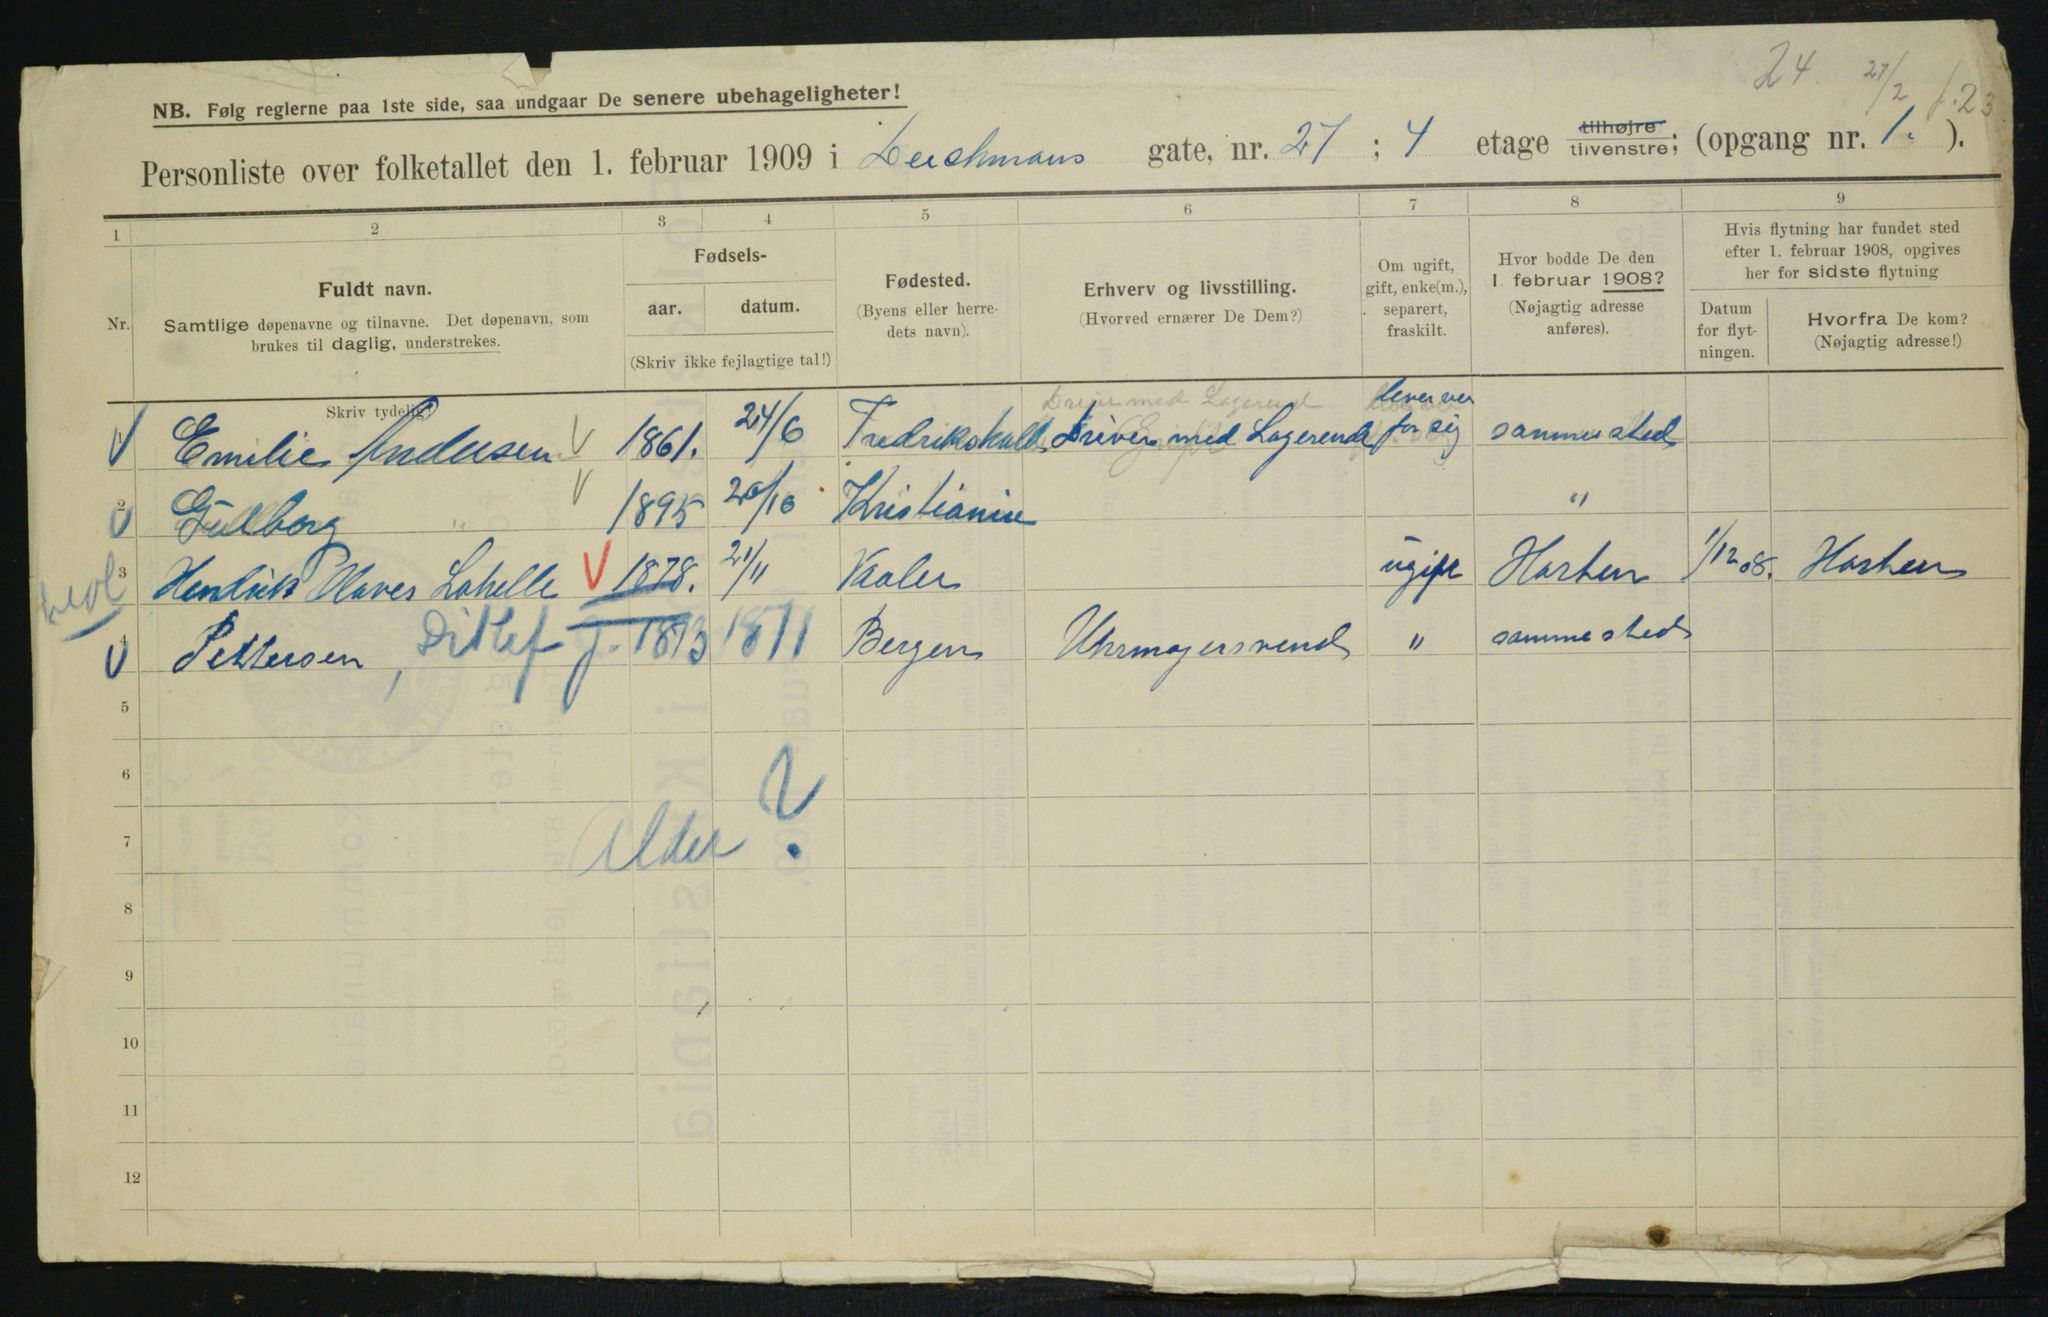 24. 27/2 f.23
NB. Følg reglerne paa 1ste side, saa undgaar De senere ubehageligheter!
Personliste over folketallet den 1. februar 1909 i Deichmans gate, nr. 27 ; 4 etage tilhøjre tilvenstre; (opgang nr. 1. ).
1 2 3 4 5 6 7 8 9
Nr.
Fuldt navn.
Samtlige døpenavne og tilnavne. Det døpenavn, som
brukes til daglig, understrekes.
Skriv tydelig!
Fødsels-
aar. datum.
(Skriv ikke fejlagtige tal!)
Fødested.
(Byens eller herre-
dets navn).
Erhverv og livsstilling.
(Hvorved ernærer De Dem?)
Om ugift,
gift, enke(m.),
separert,
fraskilt.
Hvor bodde De den
1. februar 1908?
(Nøjagtig adresse
anføres).
Hvis flytning har fundet sted
efter 1. februar 1908, opgives
her for sidste flytning
Datum
for flyt-
ningen.
Hvorfra De kom?
(Nøjagtig adresse!)
Drejer med Logerend
1 Emilie Andersen 1861. 24/6 Fredrikshald Driver med Logerende lever ver for sig samme sted
2 Gulborg " 1895 20/10 Kristiania "
3 Hendrik 1878. 21/11 Vaaler ugift Horten 1/12 08. Horten
4 Pettersen, Ditlef J. 1873 1871 Bergen Uhrmagersvend " samme sted
5
6
7 Alder ?
8
9
10
11
12